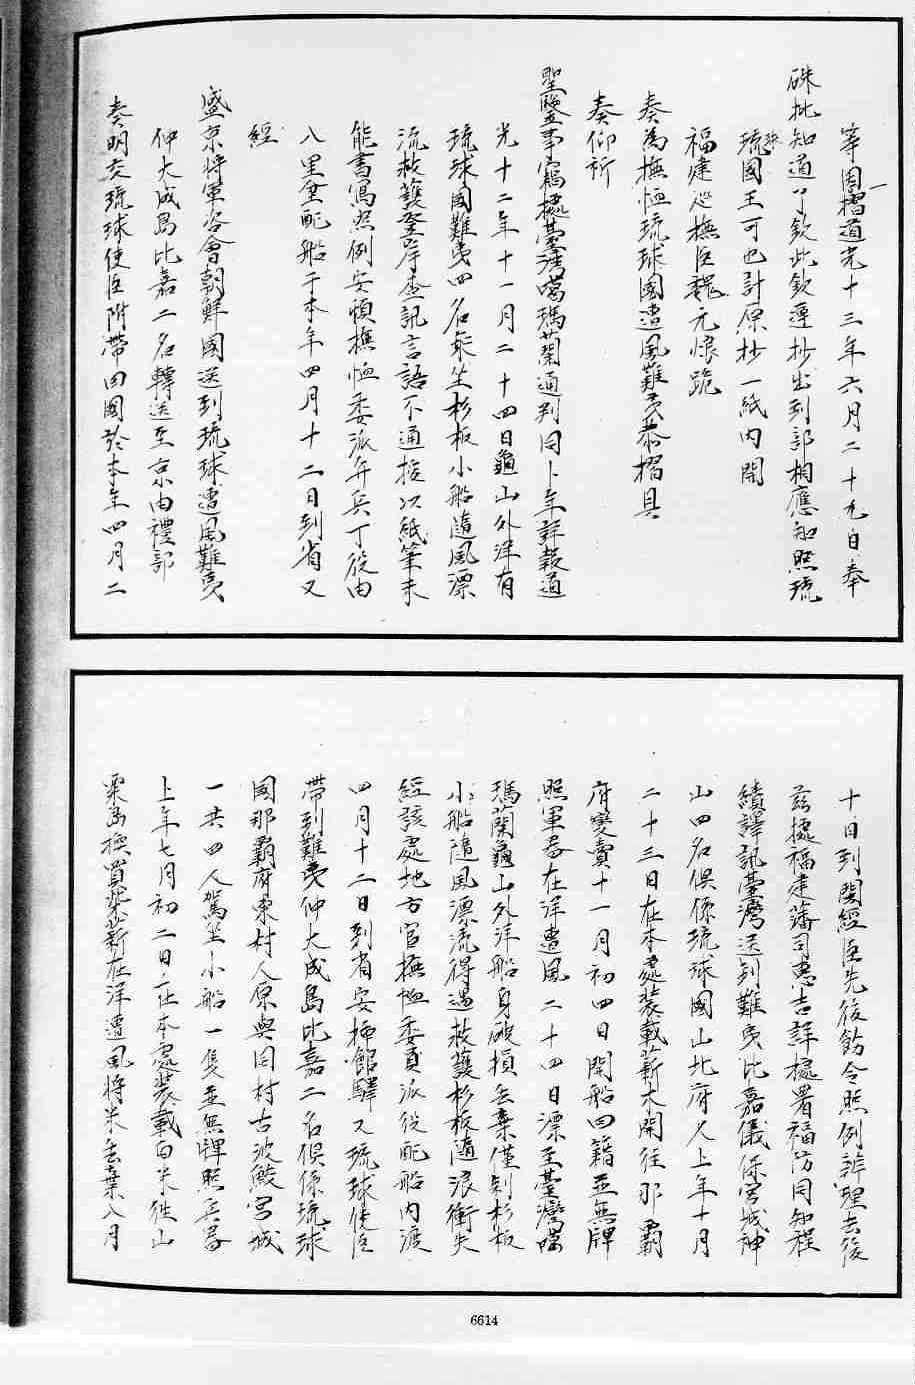 等因摺道光十三年六月二十九日奉
硃批知道了欽此欽遵抄出到部相應知照琉
琉球國王可也計原抄一紙內開
福建巡撫臣魏元烺跪
奏為撫恤琉球國遭風難夷恭摺具
奏仰祈
聖鑒事竊據臺灣噶瑪蘭通判同卜年詳報道
光十二年十一月二十四日龜山外洋有
琉球國難夷四名乘坐杉板小船隨風漂
流救護登岸查訊言語不通授以紙筆未
能書寫照例安頓撫恤委派弁兵丁役由
八里坌配船于本年四月十二日到省又
經
盛京將軍咨會朝鮮國送到琉球遭風難夷
仲大成島比嘉二名轉送至京由禮部
奏明交琉球使臣附帶回國於本年四月二
十日到閩經臣先後飭令照例辦理去後
茲據福建藩司惠吉詳據署福防同知程
績譯訊臺灣送到難夷比嘉儀保宮城神
山四名俱係琉球國山北府人上年十月
二十三日在本處裝載薪木開往那霸
府變賣十一月初四日開船回籍並無牌
照軍器在洋遭風二十四日漂至臺灣噶
瑪蘭龜山外洋船身破損丟棄僅剩杉板
小船隨風漂流得遇救護杉板隨浪衝失
經該處地方官撫恤委員派役配船內渡
四月十二日到省安插館驛又琉球使臣
帶到難夷仲大成島比嘉二名俱係琉球
國那霸府東村人原與同村古波鮫宮城
一共四人駕坐小船一隻並無牌照兵器
上年七月初二日在本處裝載白米往山
栗島換買柴薪在洋遭風將米丟棄八月
6614